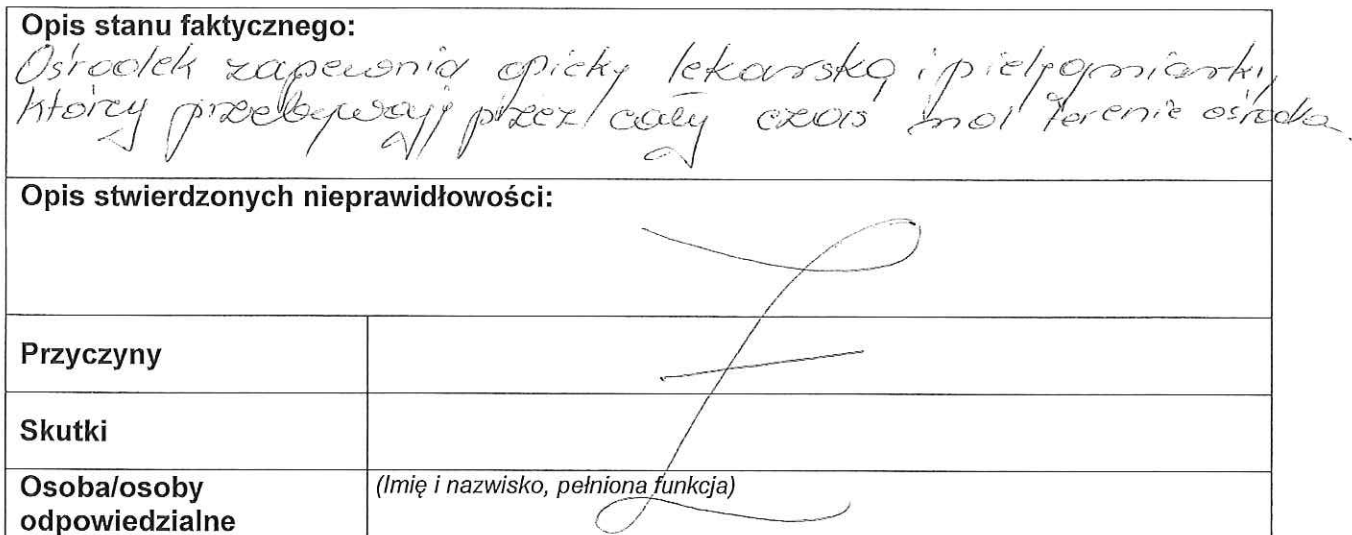 Opis stanu faktycznego:
Ośrodek zapewnia opiekę lekarską i pielęgniarki,
którzy przebywają przez cały czas na terenie ośrodka.
Opis stwierdzonych nieprawidłowości:
Przyczyny
Skutki
Osoba/osoby odpowiedzialne
(Imię i nazwisko, pełniona funkcja)